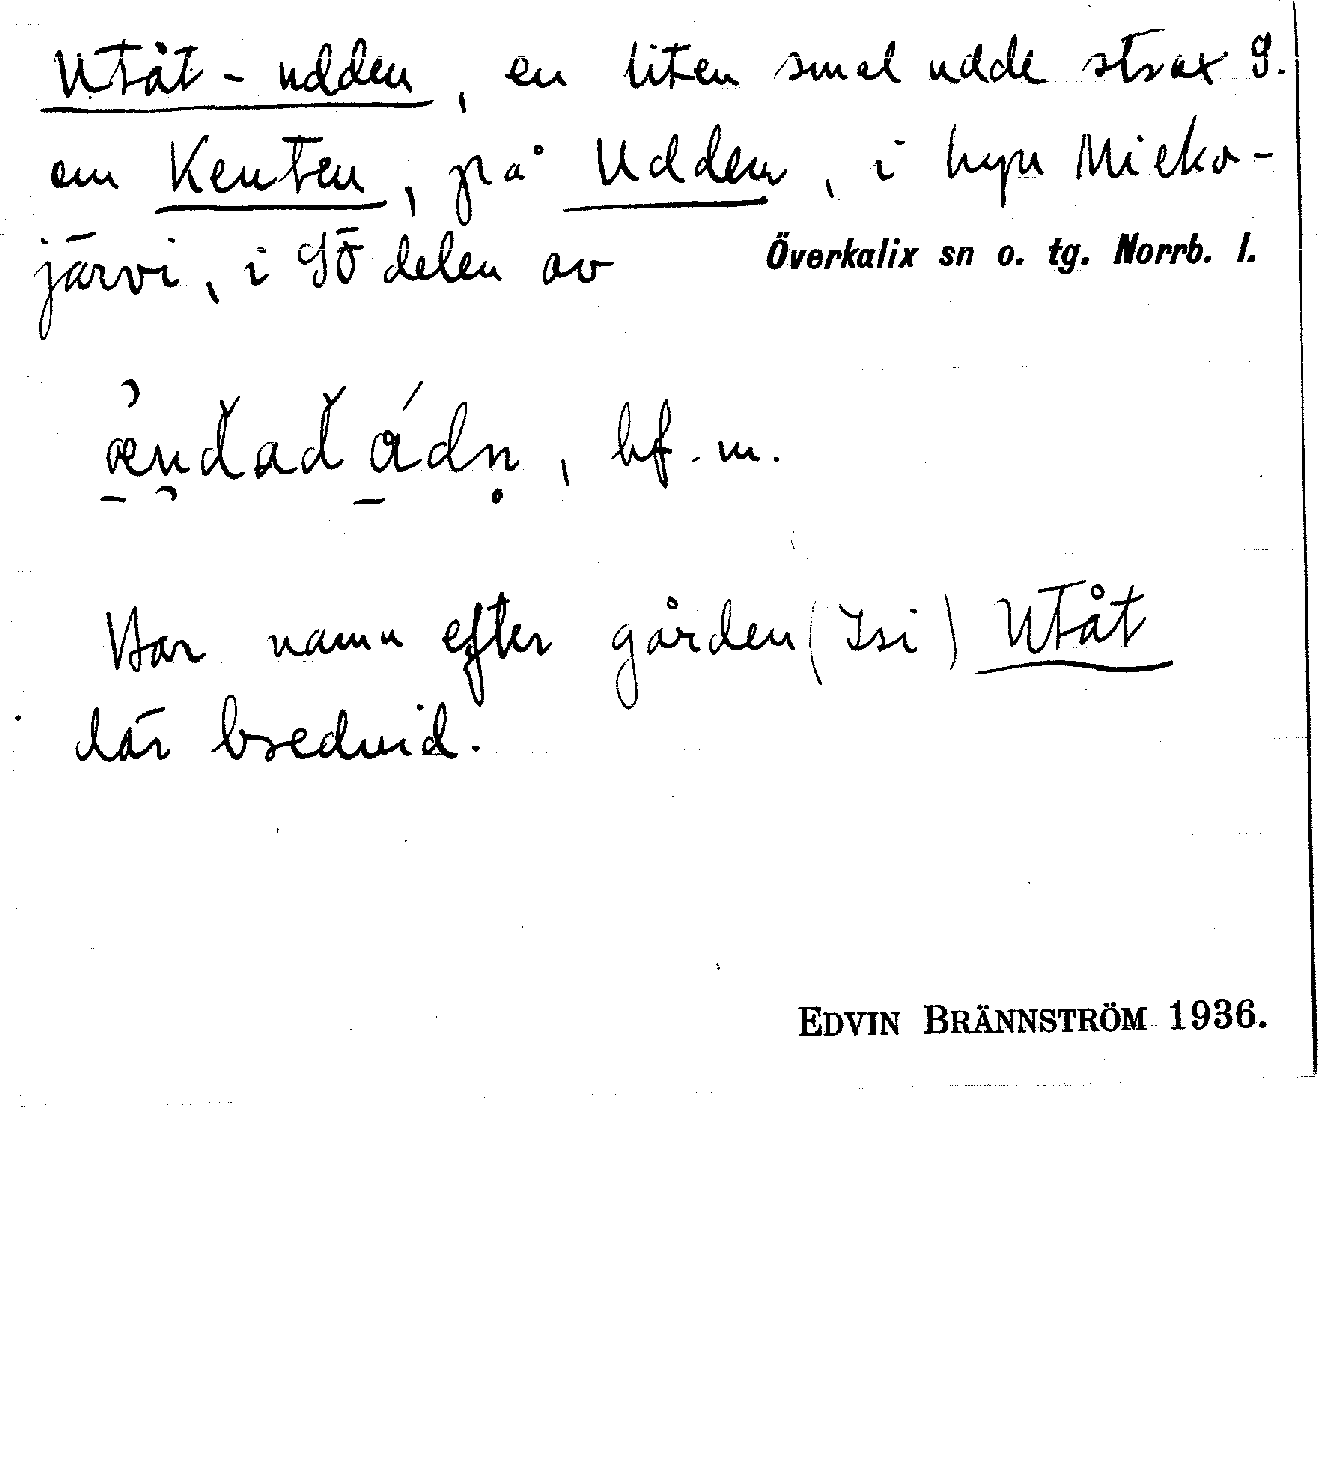 Utåt-udden, en liten smal udde strax S.
om Kenten, på Udden, i byn Mieko-
järvi, i SÖ delen av Överkalix sn o. tg. Norrb. l.
, bf. m.
Har namn efter gården (Isi) Utåt
där bredvid.
EDVIN BRÄNNSTRÖM 1936.